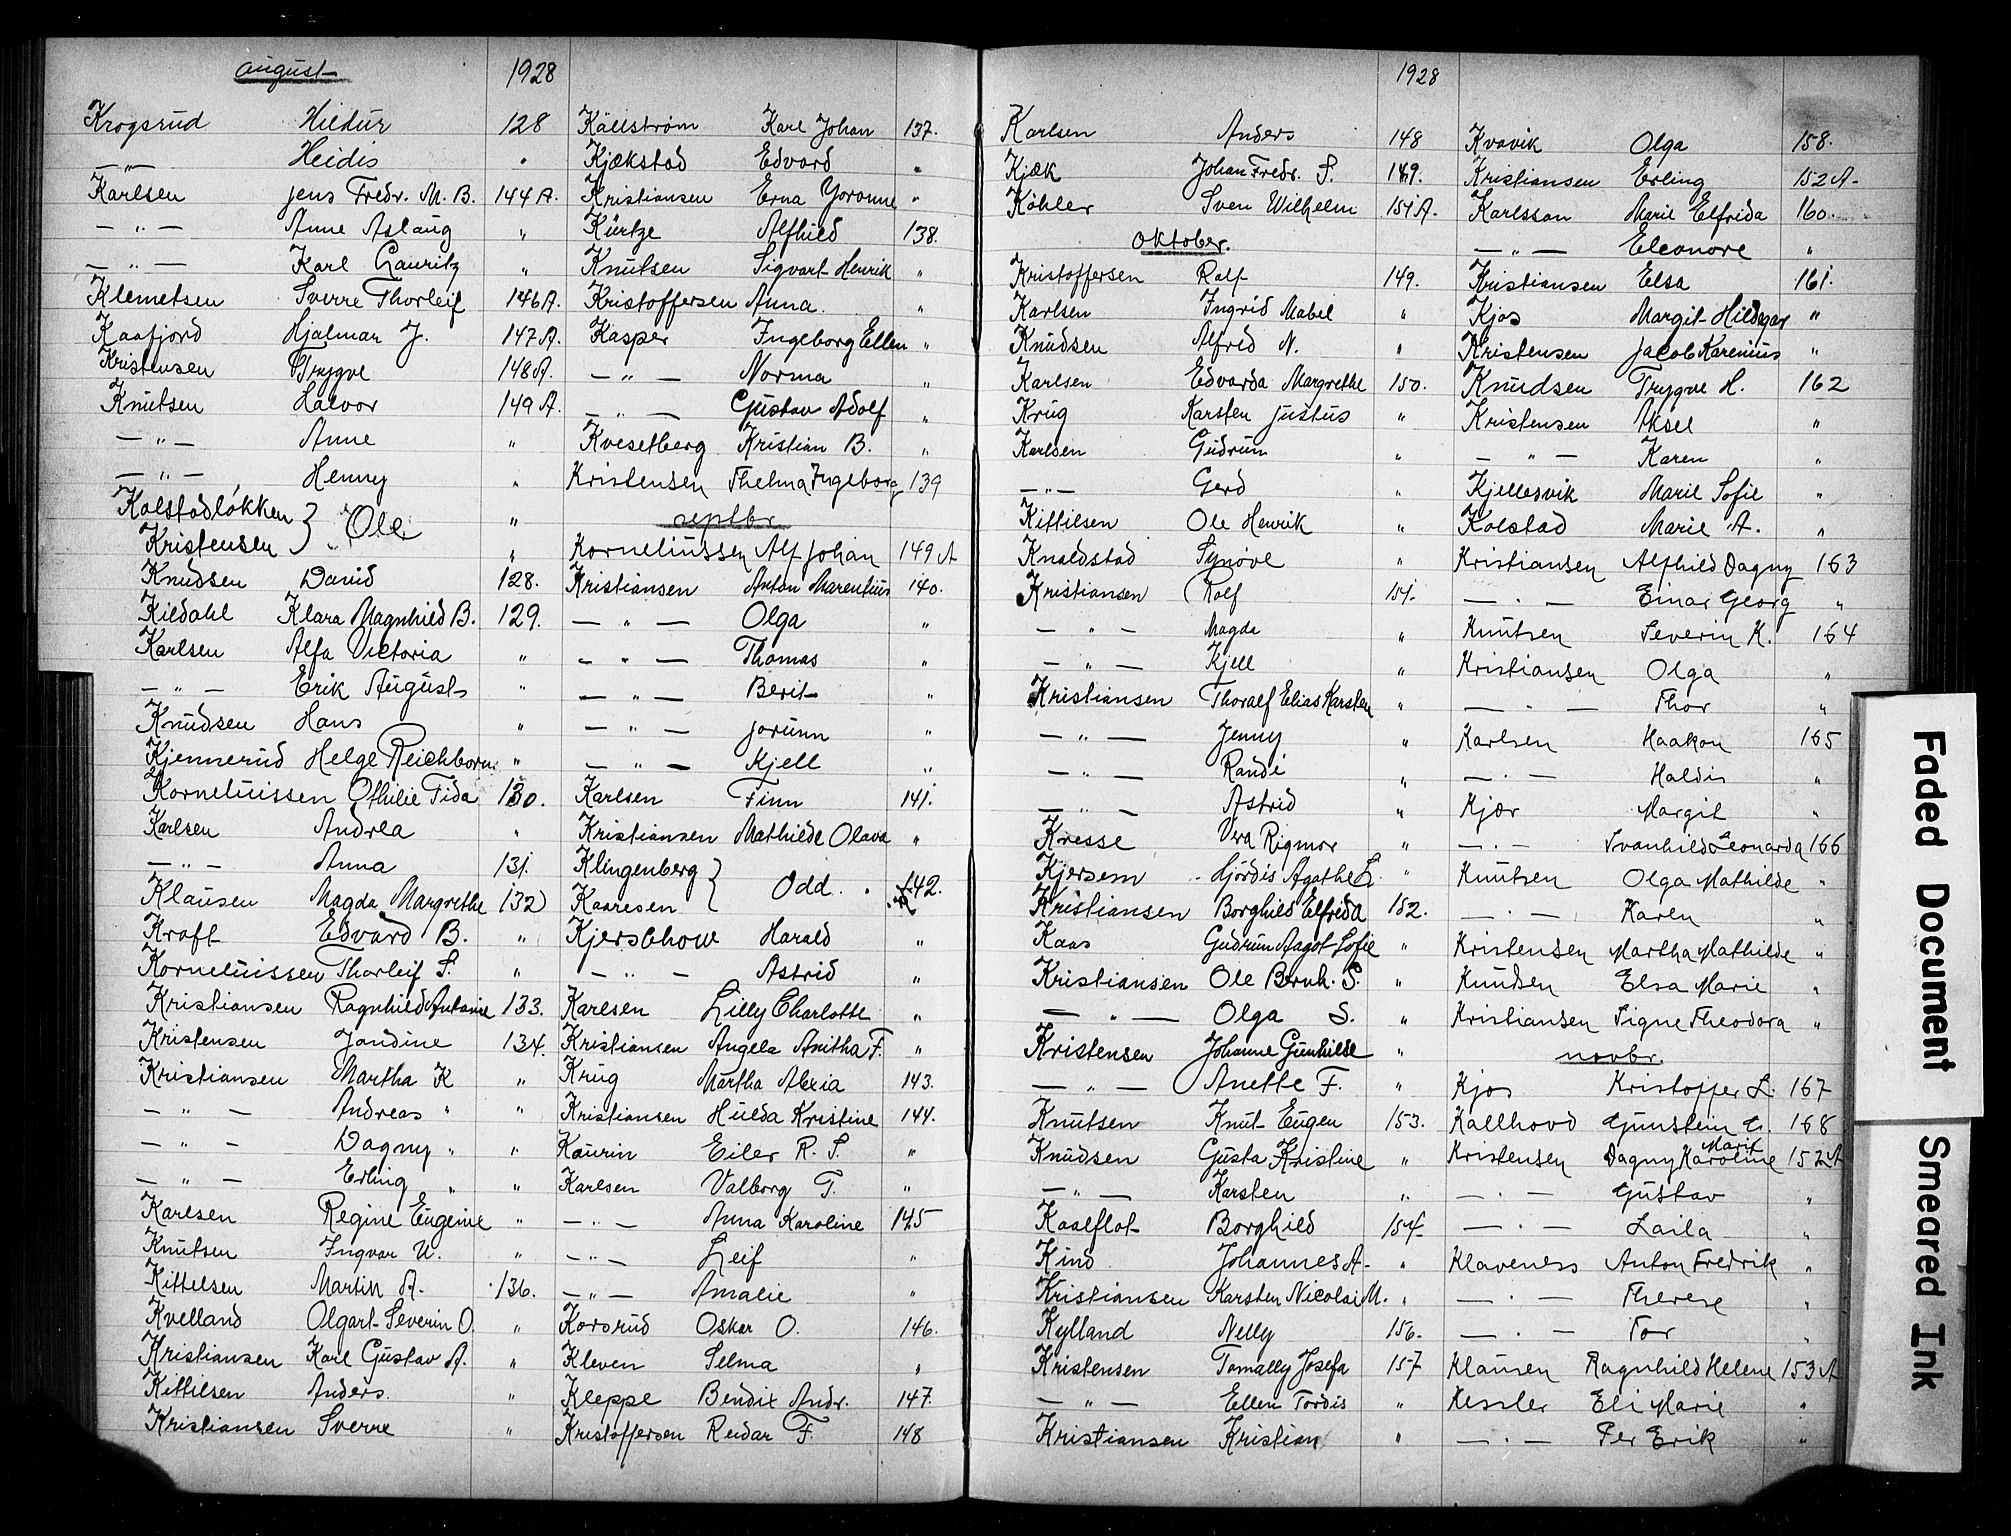 august 1928
Krogsrud Hildur 128
—"— Heidis "
Karlsen Jens Fredr. M. B. 144 A.
— " — Anne Aslaug "
— " — Karl Lauritz "
Klemetsen Sverre Thorleif 146 A.
Kaafjord Hjalmar J. 147 A.
Kristensen Trygve 148 A.
Knutsen Halvor 149 A.
— " — Anne "
— " — Henny "
Kolstadløkken } Ole "
Kristensen "
Knudsen David 128.
Kildahl Klara Magnhild B. 129.
Karlsen Alfa Victoria "
— " — Erik August "
Knudsen Hans "
Kjennerud Helge Reichborn "
Korneliussen Othilie Fida 130.
Karlsen Andrea "
— " — Anna 131.
Klausen Magda Margrethe 132
Kraft Edvard B. "
Korneliussen Thorleif S. "
Kristiansen Ragnhild Antonie 133.
Kristensen Jondine 134.
Kristiansen Martha K "
— " — Andreas " "
— " — Dagny " "
— " — Erling " "
Karlsen Regine Eugenie "
Knutsen Ingvar W. "
Kittelsen Martin A. 136.
Kvelland Olgart Severin O. "
Kristiansen Karl Gustav A. "
Kittilsen Anders. "
Kristiansen Sverre "
Källström Karl Johan 137.
Kjækstad Edvard "
Kristiansen Erna Yovonne "
Kürtze Alfhild 138.
Knutsen Sigvart Henrik "
Kristoffersen Anna. "
Kasper Ingeborg Ellen "
— " — Norma "
— " — Gustav Adolf "
Kvesetberg Kristian B. "
Kristensen Thelma Ingeborg 139
septbr.
Korneliussen Alf Johan 149 A
Kristiansen Anton Marentius 140.
— " — Olga "
— " — Thomas "
— " — Berit "
— " — Jorunn "
— " — Kjell "
Karlsen Finn 141.
Kristiansen Mathilde Olava "
Klingenberg } Odd. 142.
Kaaresen
Kjerschow Harald "
— " — Astrid "
Karlsen Lilly Charlotte "
Kristiansen Angela Anitha F. "
Krug Martha Alexia 143.
Kristiansen Hulda Kristine 144.
Kaurin Eiler R. S. "
Karlsen Valborg T. "
— " — Anna Karoline 145
— " — Leif "
— " — Amalie "
Korsrud Oskar O. 146.
Kleven Selma "
Kleppe Bendix Andr. 147.
Kristoffersen Reidar F. 148
1928
Karlsen Anders 148
Kjæk Johan Fredr. S. 149.
Köhler Sven Wilhelm 151 A.
Oktober.
Kristoffersen Rolf 149.
Karlsen Ingrid Mabel "
Knudsen Alfred N. "
Karlsen Edvarda Margrethe 150.
Krug Karsten Justus "
Karlsen Gudrun "
— " — Gerd "
Kittilsen Ole Henrik "
Knoldstad Synøve "
Kristiansen Rolf 151.
— " — Magda "
— " — Kjell "
Kristiansen Thoralf Elias Karsten "
— " — Jenny "
— " — Randi "
— " — Astrid "
Kresse Vera Rigmor "
Kjersem Hjördis Agathe L. "
Kristiansen Borghild Elfrida 152.
Kaas Gudrun Aagot Sofie "
Kristiansen Ole Bernh. S. "
— " — Olga S. "
Kristensen Johanne Gunhilde "
— " — Anette F. "
Knutsen Knut Eugen 153.
Knudsen Gusta Kristine "
— " — Karsten "
Kaalflot Borghild 154.
Kind Johannes A. "
Kristiansen Karsten Nicolai M. "
Kylland Nelly 156.
Kristensen Tomally Josefa 157
— " — Ellen Tordis "
Kristiansen Kristian "
Kvavik Olga 158.
Kristiansen Erling 152 A.
Karlsson Marie Elfrida 160.
— " — Eleonore "
Kristiansen Elsa 161.
Kjos Margit Hildegar "
Kristensen Jacob Karenius "
Knudsen Trygve H. 162
Kristensen Aksel "
— " — Karen "
Kjellesvik Marie Sofie "
Kolstad Marie A. "
Kristiansen Alfhild Dagny 163
— " — Einar Georg "
Knutsen Severin K. 164
Kristiansen Olga "
— " — Thor "
Karlsen Haakon 165
— " — Haldis "
Kjær Margit "
— " — Svanhild Leonarda 166
Knutsen Olga Mathilde "
— " — Karen "
Kristensen Martha Mathilde "
Knudsen Elsa Marie "
Kristiansen Signe Theodora "
novbr.
Kjos Kristoffer L. 167
Kallhovd Gunstein G. 168
Kristensen Dagny Karoline Marit 152 A
— " — Gustav "
— " — Laila "
Klaveness Anton Fredrik "
— " — Therese "
— " — Tor "
Klausen Ragnhild Helene 153 A
Kessler Eli Marie "
— " — Per Erik "
Faded Document
Smeared Ink